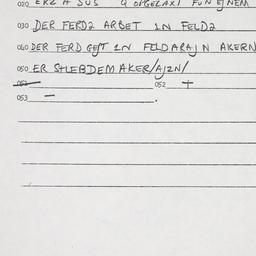 020 ERZ A SUS 4 OPGELAXT FUN EJNEM
030 DER FERDZ ARBET IN FELDZ
040 DER FERD GEPT IN FELDARAJN AKERN
050 ER SHLEBDEM AKER/AJZN/
051 052 +
053 — .